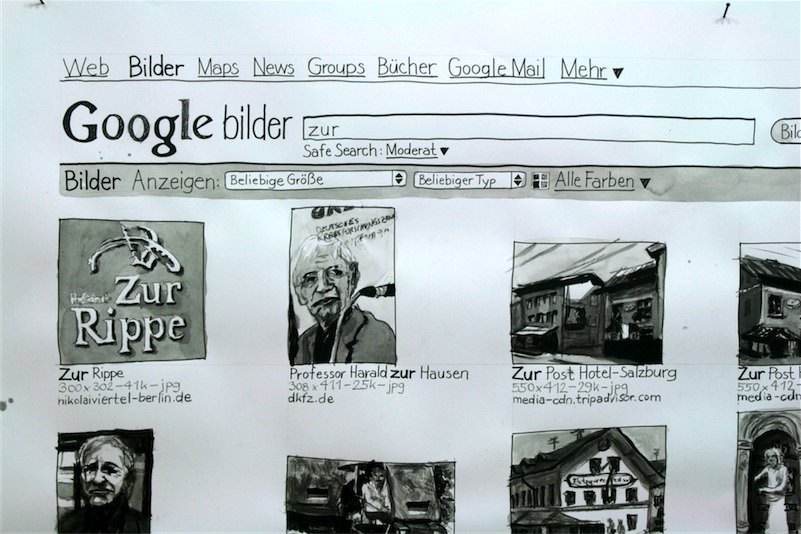 Web Bilder Maps News Groups Bücher Google Mail Mehr ▼
Google bilder zur Bil
Safe Search: Moderat ▼
Bilder Anzeigen: Beliebige Größe Beliebiger Typ Alle Farben ▼
Zur
Rippe
DEUTSCHES
Zur Rippe Professor Harald zur Hausen Zur Post Hotel-Salzburg Zur Post
300 x 302 - 41k - jpg 308 x 411 - 25k - jpg 550 x 412 - 29k - jpg 550 x 412
nikolaiviertel-berlin.de dkfz.de media-cdn.tripadvisor.com media-cdn.